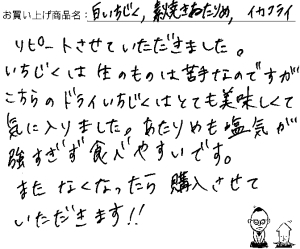 お買い上げ商品名：白いちじく，素焼きあたりめ，イカフライ
リピートさせていただきました。
いちじくは生のものは苦手なのですが
こちらのドライいちじくはとても美味しくて
気に入りました。あたりめも塩気が
強すぎず食べやすいです。
またなくなったら購入させて
いただきます!!